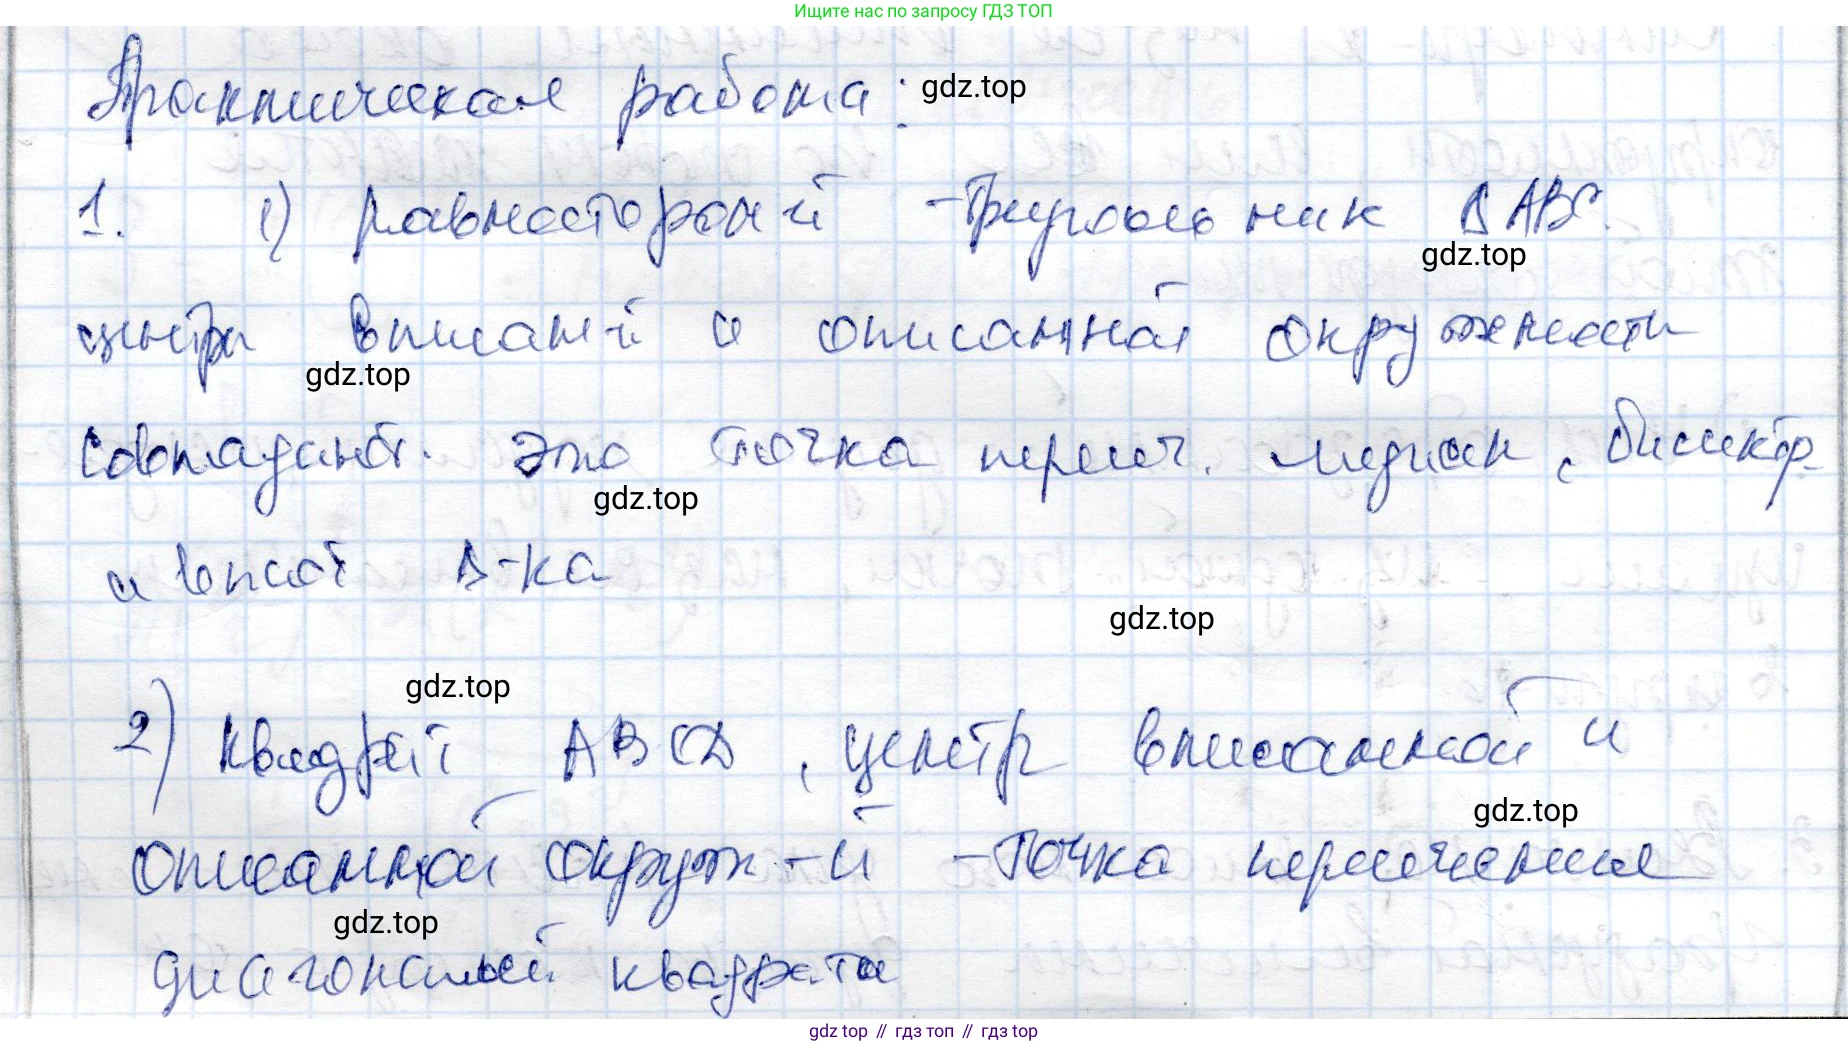 Ищите нас по запросу ГДЗ ТОП
Практическая работа: gdz.top
1. 1) Равносторонй - треугольник Δ ABC.
gdz.top
центры вписанй и описанной окружности
gdz.top
совпадают. Это точка пересеч. медиан, биссектр.
gdz.top
и высот Δ-ка
gdz.top
gdz.top
2) Квадрат ABCD, центр вписанной и
gdz.top
описанной окруж-й - точка пересечения
gdz.top
диагоналей квадрата
gdz top // гдз топ // гдз top